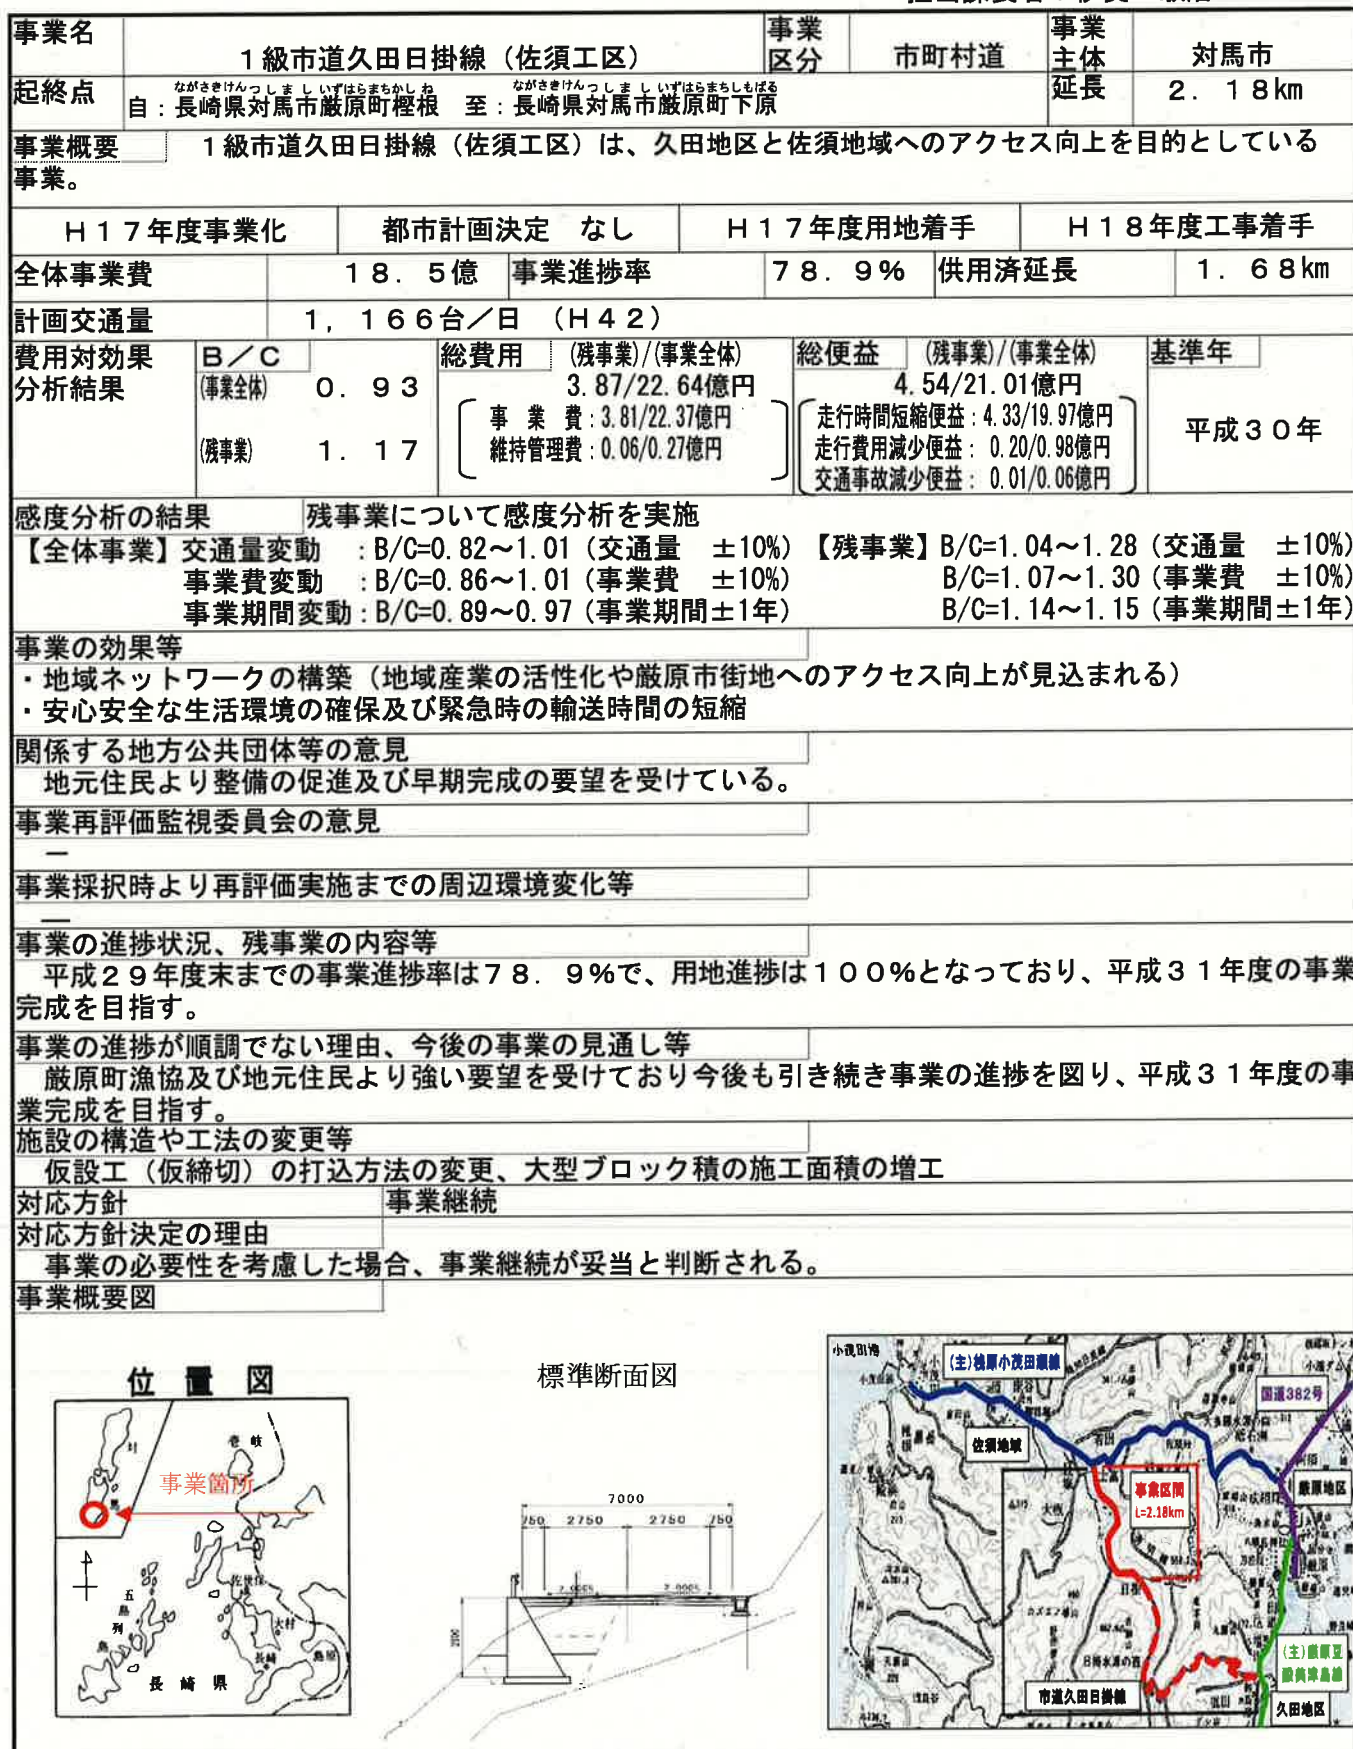 事業名
１級市道久田日掛線（佐須工区）
事業区分
市町村道
事業主体
対馬市
起終点
自：長崎県対馬市厳原町樫根　至：長崎県対馬市厳原町下原
ながさきけんつしましいずはらまちかしね
ながさきけんつしましいずはらまちしもばる
延長
２．１８km
事業概要
１級市道久田日掛線（佐須工区）は、久田地区と佐須地域へのアクセス向上を目的としている
事業。
Ｈ１７年度事業化
都市計画決定　なし
Ｈ１７年度用地着手
Ｈ１８年度工事着手
全体事業費
１８．５億
事業進捗率
７８．９％
供用済延長
１．６８km
計画交通量
１，１６６台／日　（Ｈ４２）
費用対効果
分析結果
Ｂ／Ｃ
(事業全体)　０．９３
(残事業)　１．１７
総費用　(残事業)/(事業全体)
3.87/22.64億円
事　業　費：3.81/22.37億円
維持管理費：0.06/0.27億円
総便益　(残事業)/(事業全体)
4.54/21.01億円
走行時間短縮便益：4.33/19.97億円
走行費用減少便益：0.20/0.98億円
交通事故減少便益：0.01/0.06億円
基準年
平成３０年
感度分析の結果　残事業について感度分析を実施
【全体事業】交通量変動　：B/C=0.82～1.01（交通量　±10%）【残事業】B/C=1.04～1.28（交通量　±10%）
事業費変動　：B/C=0.86～1.01（事業費　±10%）　B/C=1.07～1.30（事業費　±10%）
事業期間変動：B/C=0.89～0.97（事業期間±1年）　B/C=1.14～1.15（事業期間±1年）
事業の効果等
・地域ネットワークの構築（地域産業の活性化や厳原市街地へのアクセス向上が見込まれる）
・安心安全な生活環境の確保及び緊急時の輸送時間の短縮
関係する地方公共団体等の意見
地元住民より整備の促進及び早期完成の要望を受けている。
事業再評価監視委員会の意見
－
事業採択時より再評価実施までの周辺環境変化等
－
事業の進捗状況、残事業の内容等
平成２９年度末までの事業進捗率は７８．９％で、用地進捗は１００％となっており、平成３１年度の事業
完成を目指す。
事業の進捗が順調でない理由、今後の事業の見通し等
厳原町漁協及び地元住民より強い要望を受けており今後も引き続き事業の進捗を図り、平成３１年度の事
業完成を目指す。
施設の構造や工法の変更等
仮設工（仮締切）の打込方法の変更、大型ブロック積の施工面積の増工
対応方針
事業継続
対応方針決定の理由
事業の必要性を考慮した場合、事業継続が妥当と判断される。
事業概要図
位置図
壱岐
事業箇所
佐世保
五島列島
大村
長崎
島原
長崎県
標準断面図
7000
750
2750
2750
750
(主)桟原小茂田線
国道382号
佐須地域
事業区間
L=2.18km
厳原地区
日掛
市道久田日掛線
久田地区